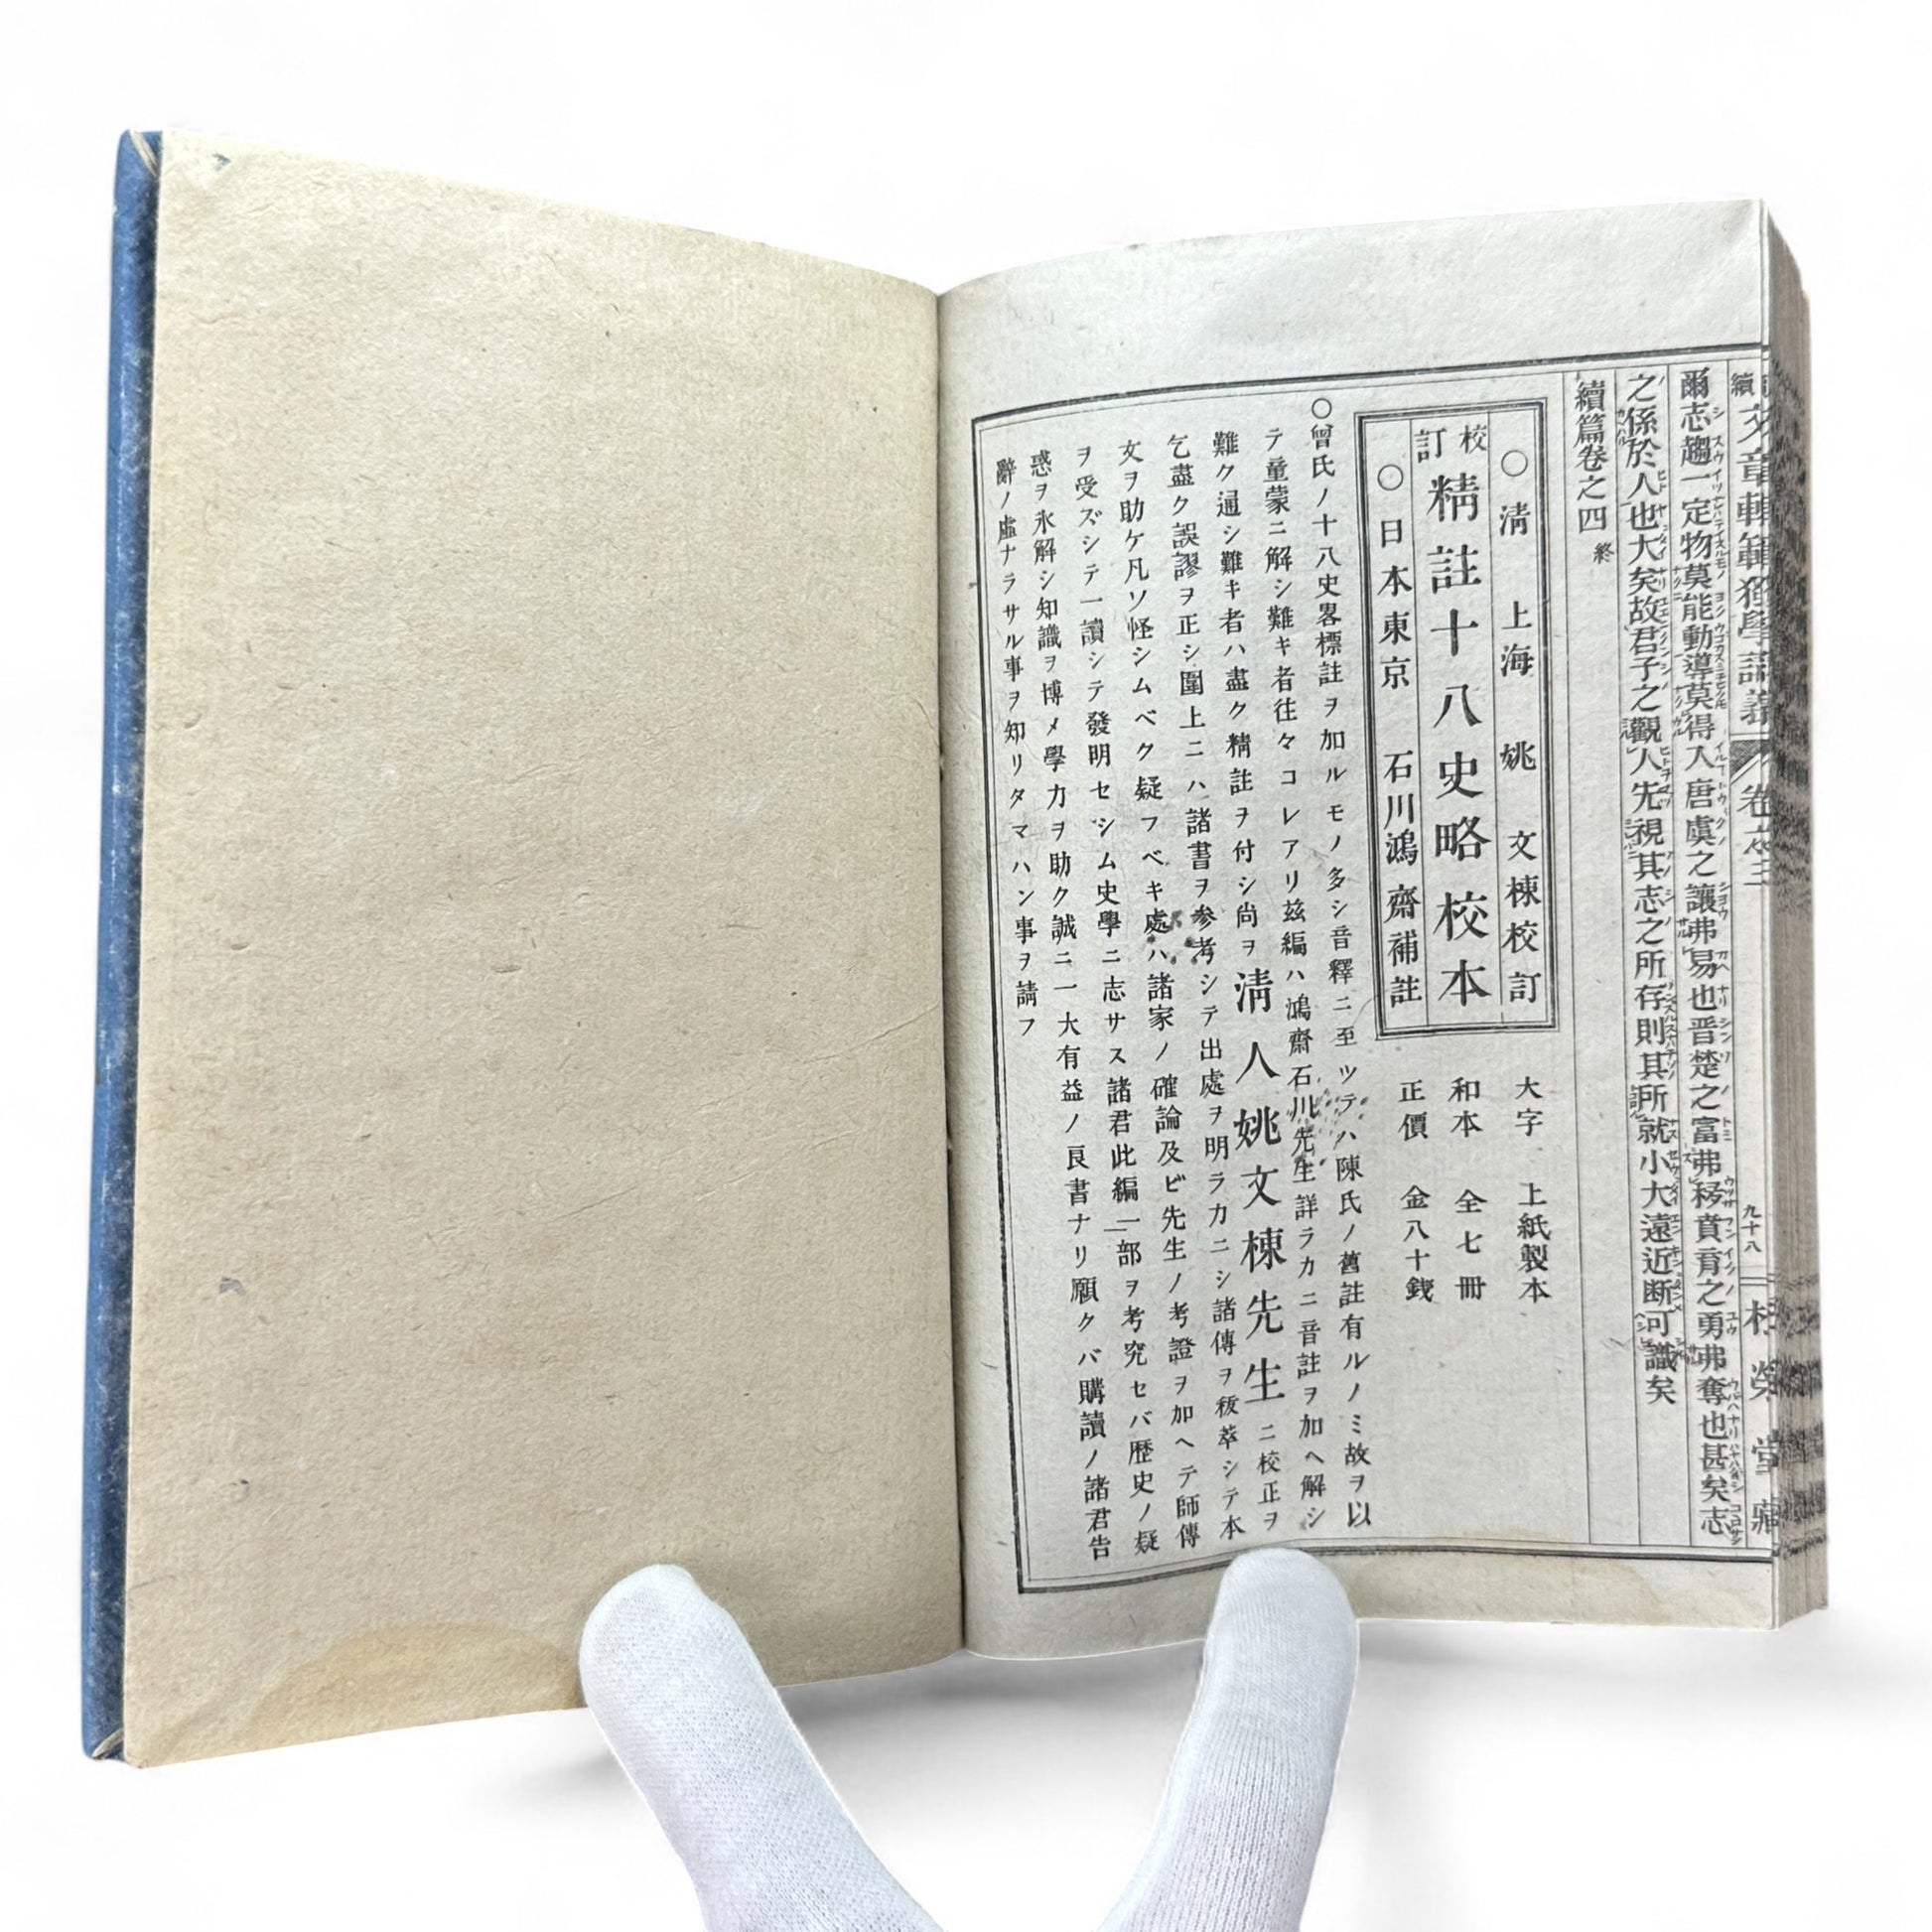 文章軌範獨學講義 卷之三 九十八 松榮堂藏
爾志趨一定物莫能動導莫得入唐虞之讓弗易也晋楚之富弗移賁育之勇弗奪也甚矣志
之係於人也大矣故君子之觀人先視其志之所存則其所就小大遠近断可識矣
續篇卷之四 終
○清 上海 姚 文棟校訂
校訂 精註十八史略校本
○日本東京 石川鴻齋補註
大字 上紙製本
和本 全七冊
正價 金八十錢
○曾氏ノ十八史畧標註ヲ加ルモノ多シ音釋ニ至ツテハ陳氏ノ舊註有ルノミ故ヲ以
テ童蒙ニ解シ難キ者往々コレアリ玆編ハ鴻齋石川先生詳ラカニ音註ヲ加ヘ解シ
難ク通シ難キ者ハ盡ク精註ヲ付シ尚ヲ清人姚文棟先生ニ校正ヲ
乞盡ク誤謬ヲ正シ圍上ニハ諸書ヲ参考シテ出處ヲ明ラカニシ諸傳ヲ秡萃シテ本
文ヲ助ケ凡ソ怪シムベク疑フベキ處ハ諸家ノ確論及ビ先生ノ考證ヲ加ヘテ師傳
ヲ受ズシテ一讀シテ發明セシム史學ニ志サス諸君此編一部ヲ考究セバ歴史ノ疑
惑ヲ氷解シ知識ヲ博メ學力ヲ助ク誠ニ一大有益ノ良書ナリ願クバ購讀ノ諸君告
辭ノ虚ナラサル事ヲ知リタマハン事ヲ請フ